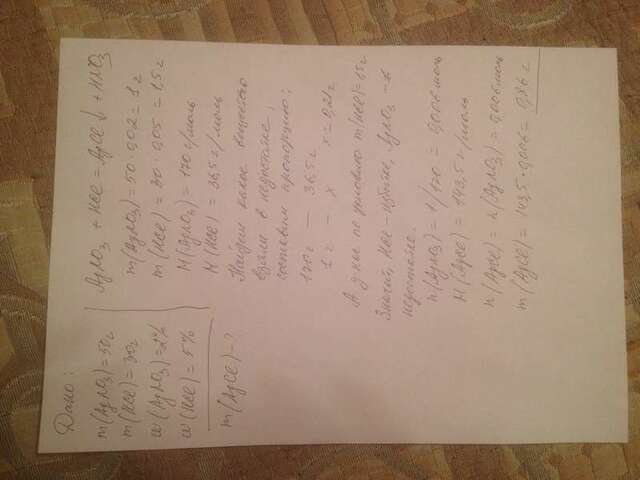 Дано:
m(AgNO3)=50г
m(HCl)=30г
w(AgNO3)=2%
w(HCl)=5%
m(AgCl)-?
AgNO3 + HCl = AgCl↓ + HNO3
m(AgNO3)=50·0,02=1г
m(HCl)=30·0,05=1,5г
M(AgNO3)=170г/моль
M(HCl)=36,5г/моль
Найдем какое вещество
взяли в недостатке,
составим пропорцию:
170г — 36,5г
1г — x x=0,21г
А у нас по условию m(HCl)=1,5г
Значит, HCl-избытке, AgNO3-в
недостатке.
n(AgNO3)=1/170=0,006моль
M(AgCl)=143,5г/моль
n(AgCl)=n(AgNO3)=0,006моль
m(AgCl)=143,5·0,006=0,86г